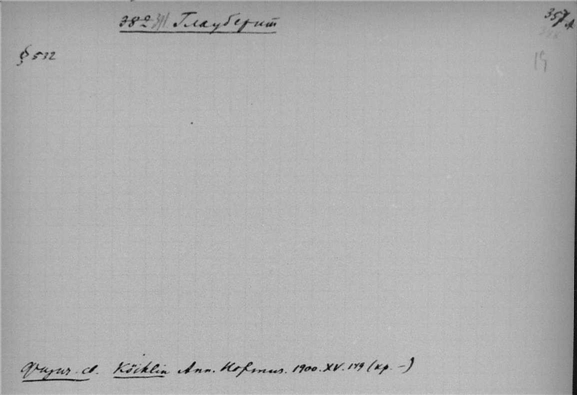 382 Глауберит
357
§ 532
Физич. св. Köchlin Ann. Hofmus. 1900. XV. 149 (кр. —)